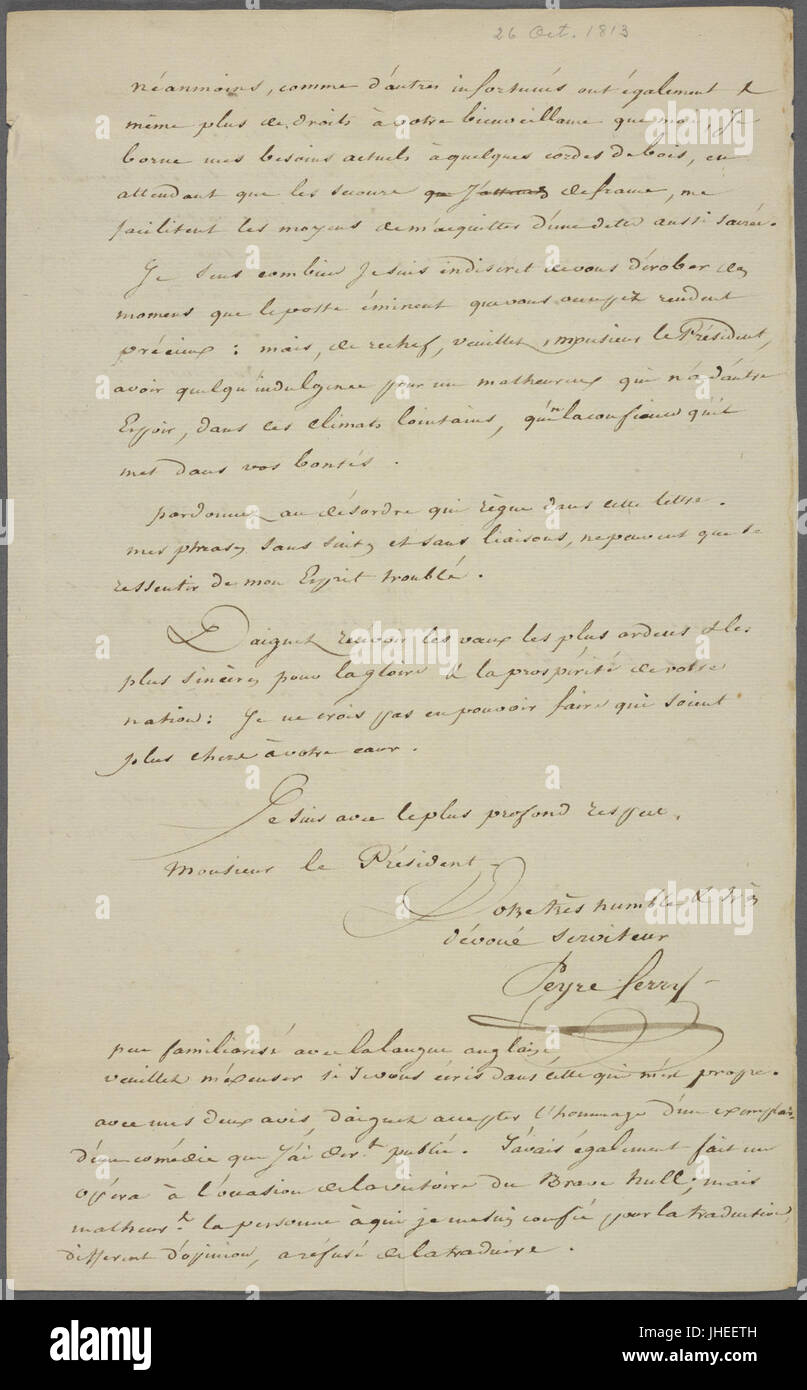 26 Oct. 1813
néanmoins, comme d'autres infortunés ont également &
même plus de droits à votre bienveillance que moi, Je
borne mes besoins actuels à quelques cordes de bois, en
attendant que les secours de france, me
facilitent les moyens de m'acquitter d'une dette aussi sacrée.
Je sens combien Je suis indiscret de vous dérober des
momens que le poste éminent que vous occupez rendent
précieux : mais, de rechef, veuillez, monsieur le Président,
avoir quelqu'indulgence pour un malheureux qui n'a d'autre
Espoir, dans ces climats lointains, qu'en la confiance qu'il
met dans vos bontés.
pardonnez au désordre qui règne dans cette lettre.
mes phrases sans suite et sans liaisons, ne peuvent que se
ressentir de mon Esprit troublé.
Daignez recevoir les vœux les plus ardens & les
plus sincères pour la gloire & la prospérité de votre
nation: Je ne crois pas en pouvoir faire qui soient
plus chers à votre cœur.
Je suis avec le plus profond respect,
Monsieur le Président
Votre très humble & très
dévoué serviteur
Peyre ferry
peu familiarisé avec la langue anglaise
veuillez m'excuser si Je vous écris dans celle qui m'est propre.
avec mes deux avis, daignez accepter l'hommage d'un exemplaire
d'une comédie que J'ai dert publié. J'avais également fait un
opéra à l'occasion de la victoire du Brave hull; mais
malheurt la personne à qui je me suis confié pour la traduction,
different d'opinion, a réfusé de la traduire.
alamy stock photo
JHEETH